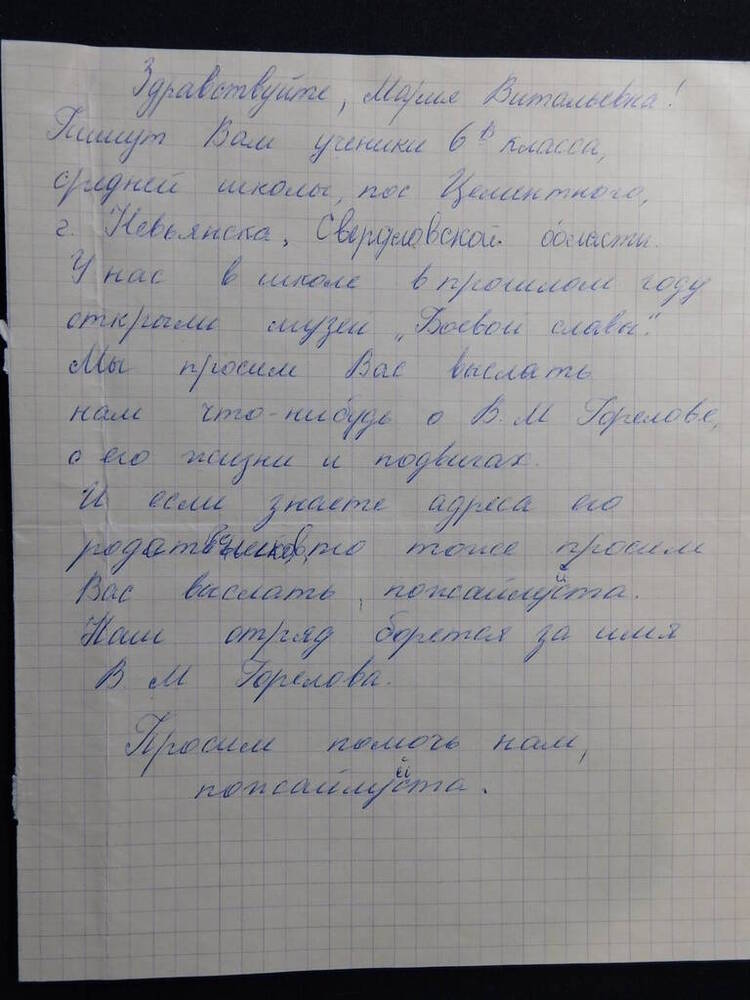 Здравствуйте, Мария Витальевна!
Пишут Вам ученики 6 в класса,
средней школы, пос Цементного,
г. Невьянска, Свердловской области.
У нас в школе в прошлом году
открыли музей „Боевой славы".
Мы просим Вас выслать
нам что-нибудь о В. М Горелове,
о его жизни и подвигах.
И если знаете адреса его
родственников, то тоже просим
Вас выслать, пожайлуйста.
Наш отряд борется за имя
В М Горелова.
Просим помочь нам,
пожайлуйста.